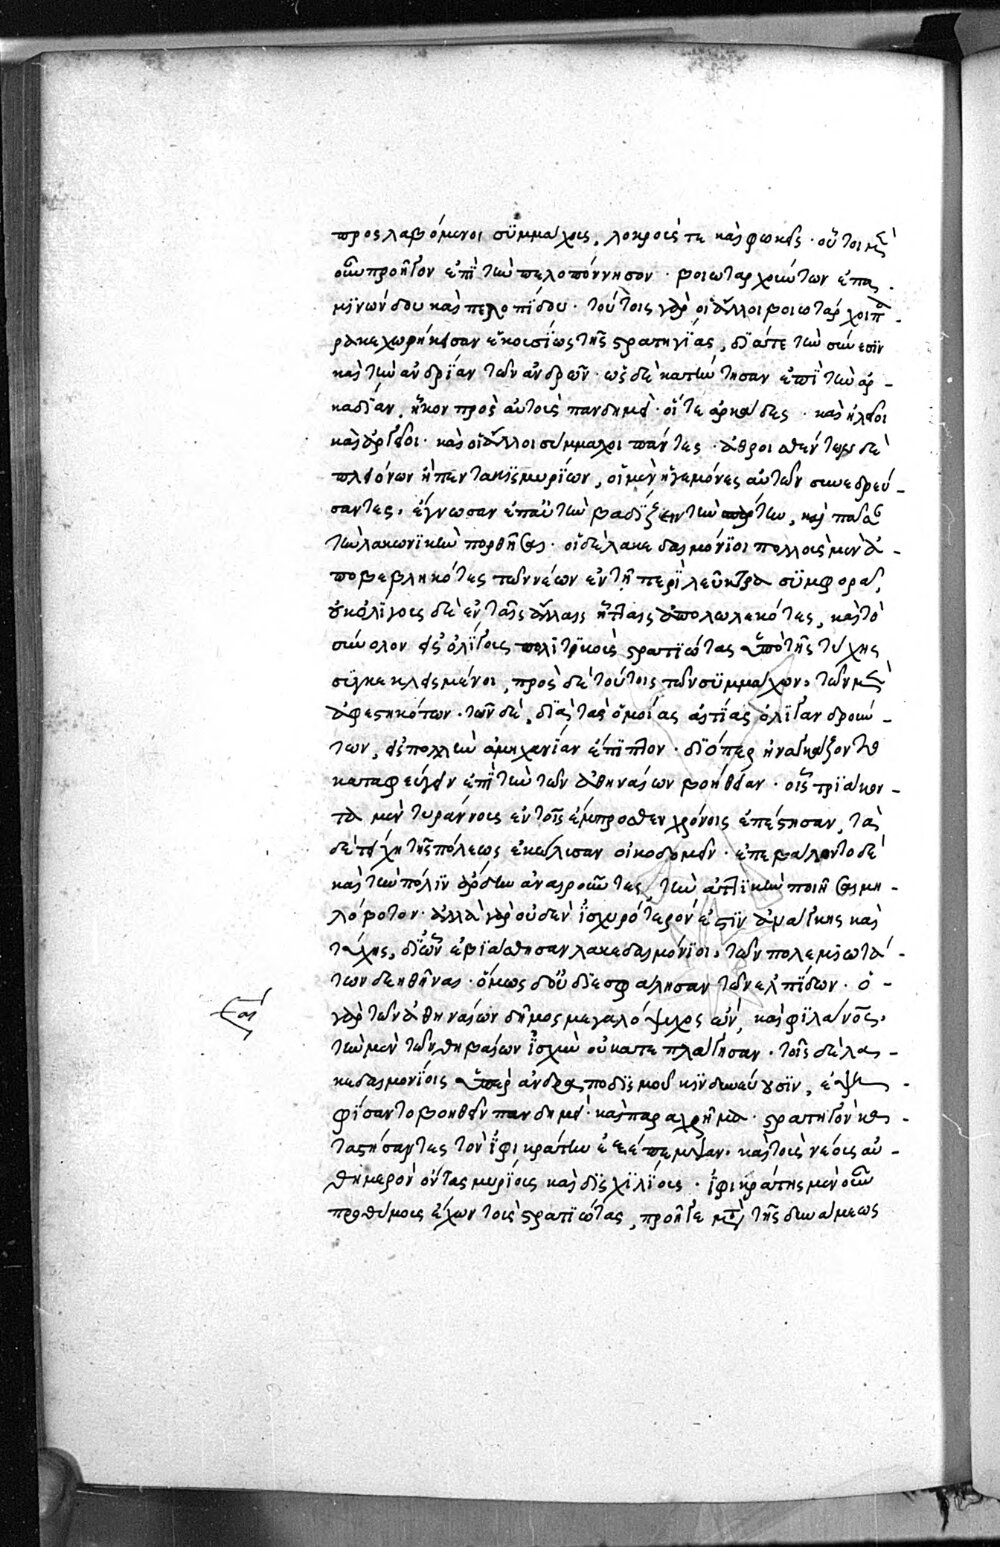 προσλαβόμενοι συμμάχους, λοκρούς τε καὶ φωκεῖς · οὗτοι μὲν
οὖν προῆγον ἐπὶ τὴν πελοπόννησον · βοιωταρχούντων ἐπα-
μινώνδου καὶ πελοπίδου · τούτοις γὰρ οἱ ἄλλοι βοιωτάρχοι πα-
ρακεχωρήκεσαν ἑκουσίως τῆς στρατηγίας, διά τε τὴν σύνεσιν
καὶ τὴν ἀνδρίαν τῶν ἀνδρῶν · ὡς δὲ κατήντησαν ἐπὶ τὴν ἀρ-
καδίαν, ἧκον πρὸς αὐτοὺς πανδημεὶ · οἵ τε ἀρκάδες · καὶ ἠλεῖοι
καὶ ἀργεῖοι · καὶ οἱ ἄλλοι σύμμαχοι πάντες · ἀθροισθέντων δὲ
πλειόνων ἢ πεντακισμυρίων, οἱ μὲν ἡγεμόνες αὐτῶν συνεδρεύ-
σαντες, ἔγνωσαν ἐπ' αὐτὴν βαδίζειν τὴν σπάρτην, καὶ πᾶσαν
τὴν λακωνικὴν πορθῆσαι · οἱ δὲ λακεδαιμόνιοι πολλοὺς μὲν ἀ-
ποβεβληκότες τῶν νέων ἐν τῇ περὶ λεῦκτρα συμφορᾷ,
οὐκ ὀλίγους δὲ ἐν ταῖς ἄλλαις ἥτταις ἀπολωλεκότες, καὶ τὸ
σύνολον εἰς ὀλίγους πολιτικοὺς στρατιώτας ὑπὸ τῆς τύχης
συγκεκλεισμένοι, πρὸς δὲ τούτοις τῶν συμμάχων, τῶν μὲν
ἀφεστηκότων · τῶν δὲ, διὰ τὰς ὁμοίας αἰτίας ὀλιγανδρούν-
των, εἰς πολλὴν ἀμηχανίαν ἔπιπτον · διόπερ ἠναγκάζοντο
καταφεύγειν ἐπὶ τὴν τῶν ἀθηναίων βοήθειαν · οἷς τριάκον-
τα μὲν τυράννους ἐν τοῖς ἔμπροσθεν χρόνοις ἐπέστησαν, τὰ
δὲ τείχη τῆς πόλεως ἐκώλυσαν οἰκοδομεῖν · ἐπεβάλοντο δὲ
καὶ τὴν πόλιν ἄρδην ἀναιροῦντες, τὴν ἀττικὴν ποιῆσαι μη-
λόβοτον · ἀλλὰ γὰρ οὐδὲν ἰσχυρότερόν ἐστιν ἀνάγκης καὶ
τύχης, δι' ὧν ἐβιάσθησαν λακεδαιμόνιοι, τῶν πολεμιωτά-
των δεηθῆναι · ὅμως δ' οὐ διεσφάλησαν τῶν ἐλπίδων · ὁ
γὰρ τῶν ἀθηναίων δῆμος μεγαλόψυχος ὢν, καὶ φιλάνθρωπος,
τὴν μὲν τῶν θηβαίων ἰσχὺν οὐ κατεπλάγησαν · τοῖς δὲ λα-
κεδαιμονίοις ὑπὲρ ἀνδραποδισμοῦ κινδυνεύουσιν, ἐψη-
φίσαντο βοηθεῖν πανδημεὶ · καὶ παραχρῆμα · στρατηγὸν κα-
ταστήσαντες τὸν ἰφικράτην ἐξέπεμψαν, καὶ τοὺς νέους αὐ-
θημερὸν ὄντας μυρίους καὶ δισχιλίους · ἰφικράτης μὲν οὖν
προθύμους ἔχων τοὺς στρατιώτας, προῆγε μετὰ τῆς δυνάμεως